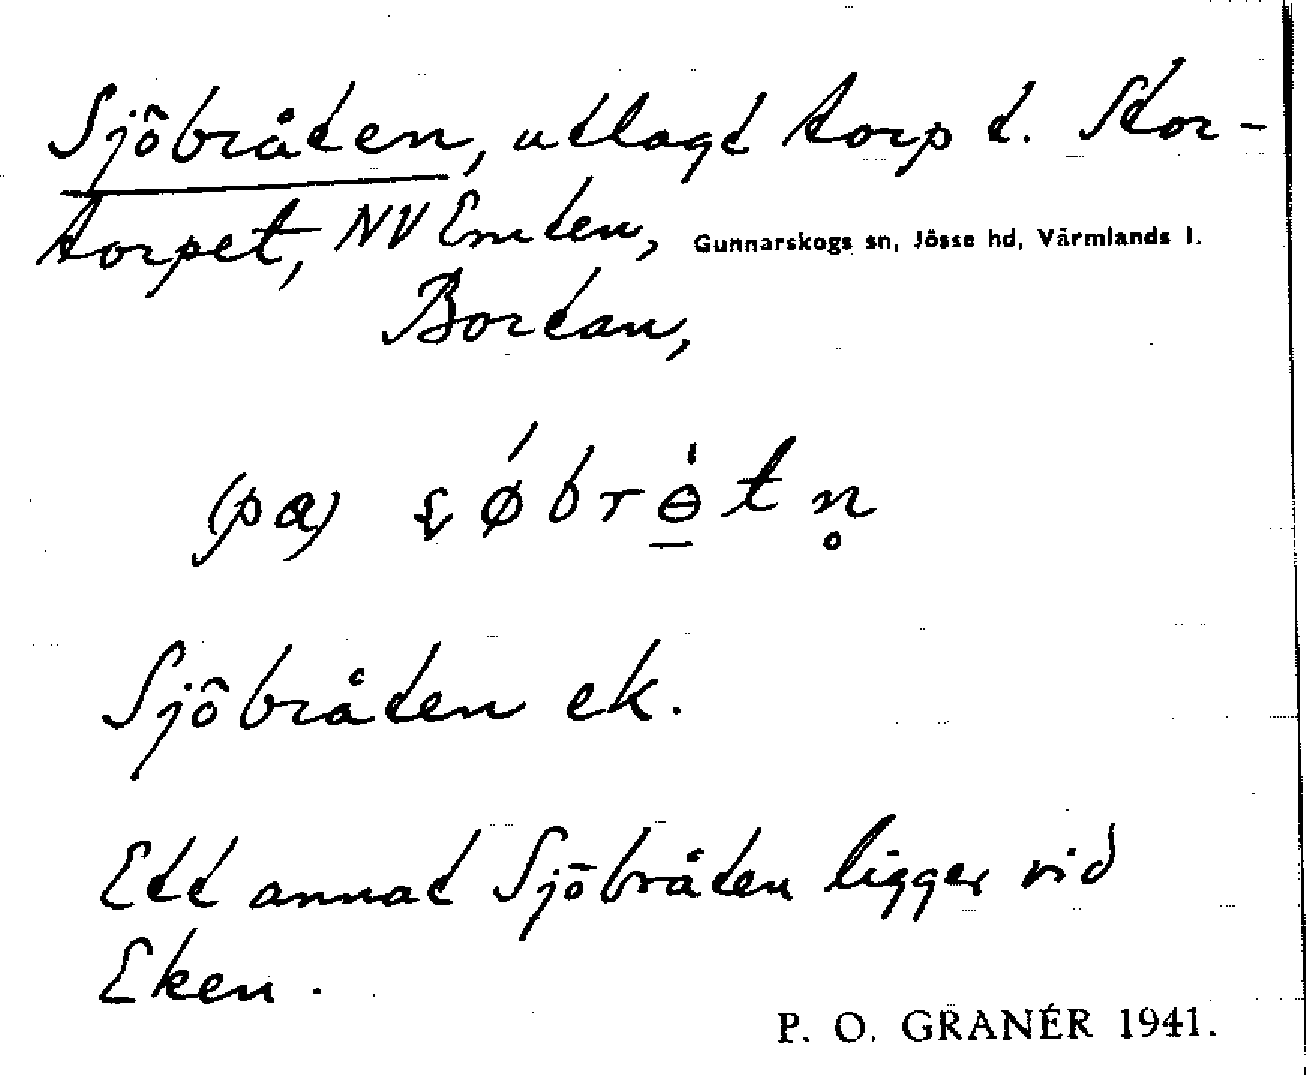 Sjöbråten, utlagt torp t. Stor-
torpet, NV Emten, Gunnarskogs sn, Jösse hd, Värmlands l.
Bortan,
(på) 
Sjöbråten ek.
Ett annat Sjöbråten ligger vid
Eken.
P. O. GRANÉR 1941.